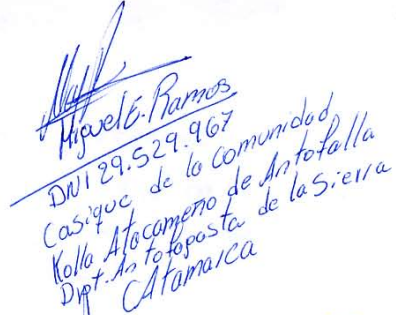 Miguel E. Ramos
DNI 29.529.967
Casique de la comunidad
Kolla Atacameño de Antofalla
Dpt. Antofagasta de la Sierra
CAtamarca